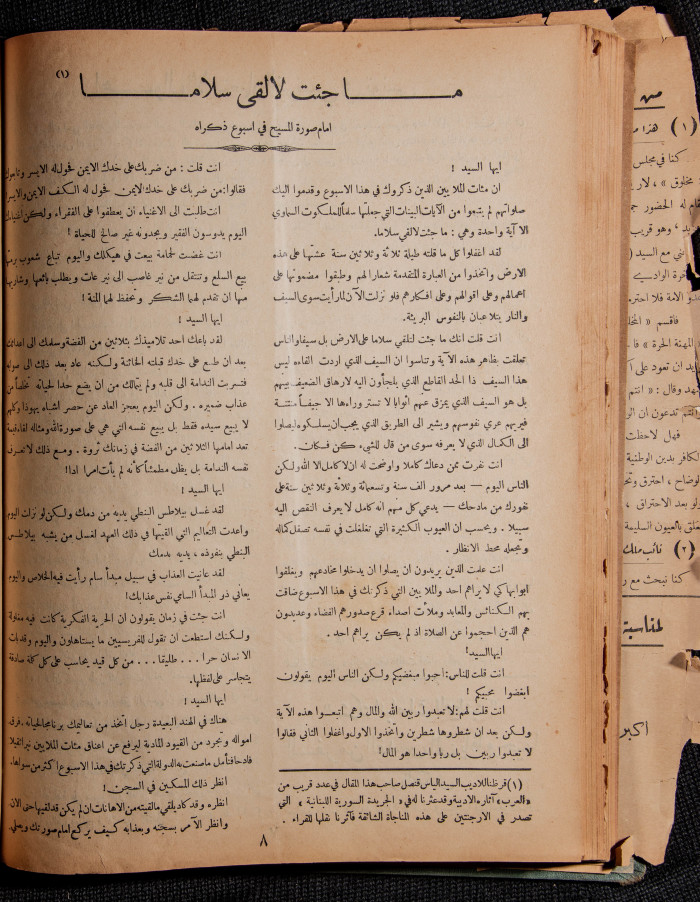 ما جئت لالقى سلاما (١)
امام صورة المسيح في اسبوع ذكراه
ايها السيد !
ان مئات الملايين الذين ذكروك في هذا الاسبوع وقدموا اليك
صلواتهم لم يتبعوا من الآيات البينات التي جعلتها سلماً للملكوت السماوي
الا آية واحدة وهي : ما جئت لالقي سلاما.
لقد اغفلوا كل ما قلته طيلة ثلاثة وثلاثين سنة عشتها على هذه
الارض واتخذوا من العبارة المتقدمة شعارا لهم وطبقوا مضمونها على
اعمالهم وعلى اقوالهم وعلى افكارهم فلو نزلت الآن لما رأيت سوى السيف
والنار يتلاعبان بالنفوس البريئة.
انت قلت انك ما جئت لتلقي سلاما على الارض بل سيفا والناس
تعلقت بظاهر هذه الآية وتناسوا ان السيف الذي اردت القاءه ليس
هذا السيف ذا الحد القاطع الذي يلجأون اليه لارهاق الضعيف بينهم
بل هو السيف الذي يمزق عنهم اثوابا لا تستر وراءها الا جيفاً منتنة
فيريهم عري نفوسهم ويشير الى الطريق الذي يجب ان يسلكوه ليصلوا
الى الكمال الذي لا يعرفه سوى من قال للشيء كن فكان.
انت نفرت ممن دعاك كاملا واوضحت له ان لا كامل الا الله ولكن
الناس اليوم — بعد مرور الف سنة وتسعمائة وثلاثة وثلاثين سنة على
نفورك من مادحك — يدعي كل منهم انه كامل لا يعرف النقص اليه
سبيلا . ويحسب ان العيوب الكثيرة التي تغلغلت في نفسه تصقل كماله
وتجعله محط الانظار .
انت علمت الذين يريدون ان يصلوا ان يدخلوا مخادعهم ويغلقوا
ابوابها كي لا يراهم احد والملايين التي ذكرتك في هذا الاسبوع ضاقت
بهم الكنائس والمعابد وملأت اصداء قرع صدورهم الفضاء وعديدون
هم الذين احجموا عن الصلاة اذ لم يكن يراهم احد .
ايها السيد!
انت قلت للناس: احبوا مبغضيكم ولكن الناس اليوم يقولون
ابغضوا محبيكم !
انت قلت لهم: لا تعبدوا ربين الله والمال وهم اتبعوا هذه الآية
ولكن بعد ان شطروها شطرين واتخذوا الاول واغفلوا الثاني فقالوا
لا تعبدوا ربين بل ربا واحدا هو المال!
(١) قرظنا للاديب السيد الياس قنصل صاحب هذا المقال في عدد قريب من
«العرب» آثاره الادبية وقد عثرنا له في «الجريدة السورية اللبنانية» التي
تصدر في الارجنتين على هذه المناجاة الشائقة فآثرنا نقلها للقراء .
انت قلت : من ضربك على خدك الايمن فحول له الايسر
فقالوا: من ضربك على خدك الايمن فحول له الكف الايمن والايسر
انت طلبت الى الاغنياء ان يعطفوا على الفقراء ولكن
اليوم يدوسون الفقير ويجدونه غير صالح للحياة !
انت غضبت لحمامة بيعت في هيكلك واليوم تباع شعوب
بيع السلع وتنتقل من نير غاصب الى نير عات ويطلب بائعها وشاريها
منها ان تقدم لهما الشكر وتحفظ لهما المنة !
ايها السيد !
لقد باعك احد تلاميذك بثلاثين من الفضة وسلمك الى
بعد ان طبع على خدك قبلته الخائنة ولكنه عاد بعد ذلك الى
فتسربت الندامة الى قلبه ولم يتمالك من ان يضع حدا لحياته تخلصاً من
عذاب ضميره . ولكن اليوم يعجز العاد عن حصر اشباه يهوذا وكلهم
لا يبيع سيده فقط بل يبيع نفسه التي هي على صورة الله ومثاله
تعد امامها الثلاثين من الفضة في زمانك ثروة . ومع ذلك لا تعرف
نفسه الندامة بل يظل مطمئناً كأنه لم يأت امرا ادا!
ايها السيد !
لقد غسل بيلاطس البنطي يديه من دمك ولكن لو نزلت اليوم
واعدت التعاليم التي القيتها في ذلك العهد لغسل من يشبه بيلاطس
البنطي بنفوذه ، يديه بدمك
لقد عانيت العذاب في سبيل مبدأ سام رأيت فيه الخلاص واليوم
يعاني ذو المبدأ السامي نفس عذابك!
انت جئت في زمان يقولون ان الحرية الفكرية كانت فيه مغلولة
ولكنك استطعت ان تقول للفريسيين ما يستاهلون واليوم وقد بات
الانسان حرا . . . طليقا . . . من كل قيد يحاسب على كل كلمة صادقة
يتجاسر على لفظها.
ايها السيد !
هناك في الهند البعيدة رجل اتخذ من تعاليمك برنامجا لحياته
امواله وتجرد من القيود المادية ليرفع عن اعناق مئات الملايين
ما صنعته به الدولة التي ذكرتك في هذا الاسبوع اكثر من سواها.
انظر ذلك المسكين في السجن !
انظره وقد كاد يلقي ما لقيته من الاهانات ان لم يكن قد لقيها حتى الآن.
وانظر الآمر بسجنه وبعذابه كيف يركع امام صورتك ويصلي.
٨
من
(١) هذا
كنا في مجلس
مخلوق » ،
الحضور
وهو قريب
مع السيد
فاقسم «
المهنة الحرة » فا
ان تعود على
وقال : « انتم
تدعون ان
فهل لاحظت
بدين الوطنية
، احترق
بعد الاحتراق ،
بالعيون السليمة
(٢) نائب ملك
كنا نبحث مع
لمناسبة
اكبر